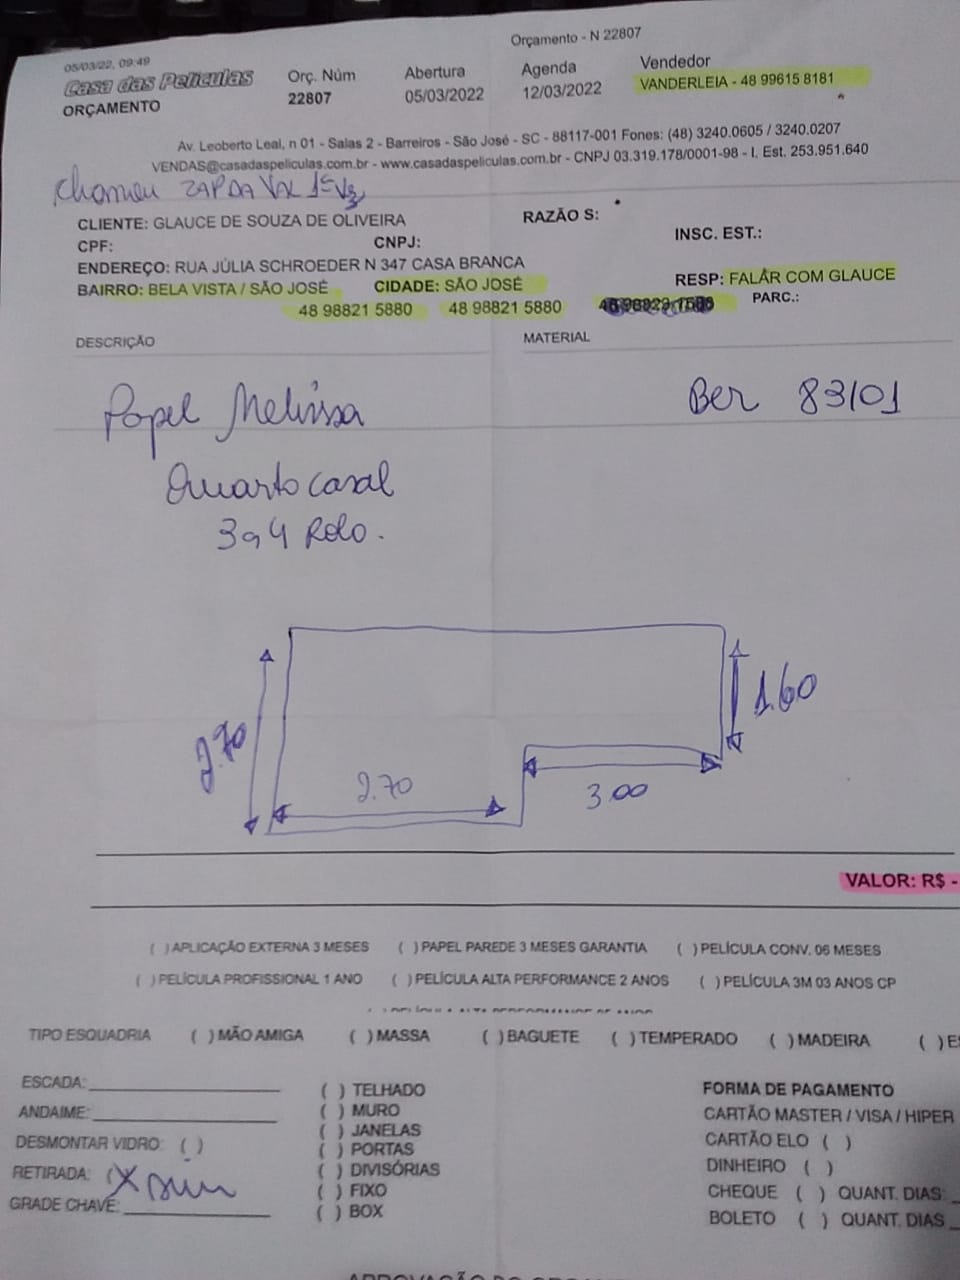 Orçamento - N 22807
05/03/22, 09:49
Casa das Películas
ORÇAMENTO
Orç. Núm
22807
Abertura
05/03/2022
Agenda
12/03/2022
Vendedor
VANDERLEIA - 48 99615 8181
Av. Leoberto Leal, n 01 - Salas 2 - Barreiros - São José - SC - 88117-001 Fones: (48) 3240.0605 / 3240.0207
VENDAS@casadaspeliculas.com.br - www.casadaspeliculas.com.br - CNPJ 03.319.178/0001-98 - I. Est. 253.951.640
Chamou ZAP DA VAL
CLIENTE: GLAUCE DE SOUZA DE OLIVEIRA RAZÃO S:
CPF: CNPJ: INSC. EST.:
ENDEREÇO: RUA JÚLIA SCHROEDER N 347 CASA BRANCA
BAIRRO: BELA VISTA / SÃO JOSÉ CIDADE: SÃO JOSÉ RESP: FALAR COM GLAUCE
48 98821 5880 48 98821 5880 PARC.:
DESCRIÇÃO MATERIAL
Papel Melissa Ber 83/01
Quarto casal
3 a 4 Rolo.
1.60
2.70
2.70
3.00
VALOR: R$ -
( ) APLICAÇÃO EXTERNA 3 MESES ( ) PAPEL PAREDE 3 MESES GARANTIA ( ) PELÍCULA CONV. 06 MESES
( ) PELÍCULA PROFISSIONAL 1 ANO ( ) PELÍCULA ALTA PERFORMANCE 2 ANOS ( ) PELÍCULA 3M 03 ANOS CP
TIPO ESQUADRIA ( ) MÃO AMIGA ( ) MASSA ( ) BAGUETE ( ) TEMPERADO ( ) MADEIRA ( ) E
ESCADA:
ANDAIME:
DESMONTAR VIDRO: ( )
RETIRADA: (X sim
GRADE CHAVE:
( ) TELHADO
( ) MURO
( ) JANELAS
( ) PORTAS
( ) DIVISÓRIAS
( ) FIXO
( ) BOX
FORMA DE PAGAMENTO
CARTÃO MASTER / VISA / HIPER
CARTÃO ELO ( )
DINHEIRO ( )
CHEQUE ( ) QUANT. DIAS:
BOLETO ( ) QUANT. DIAS